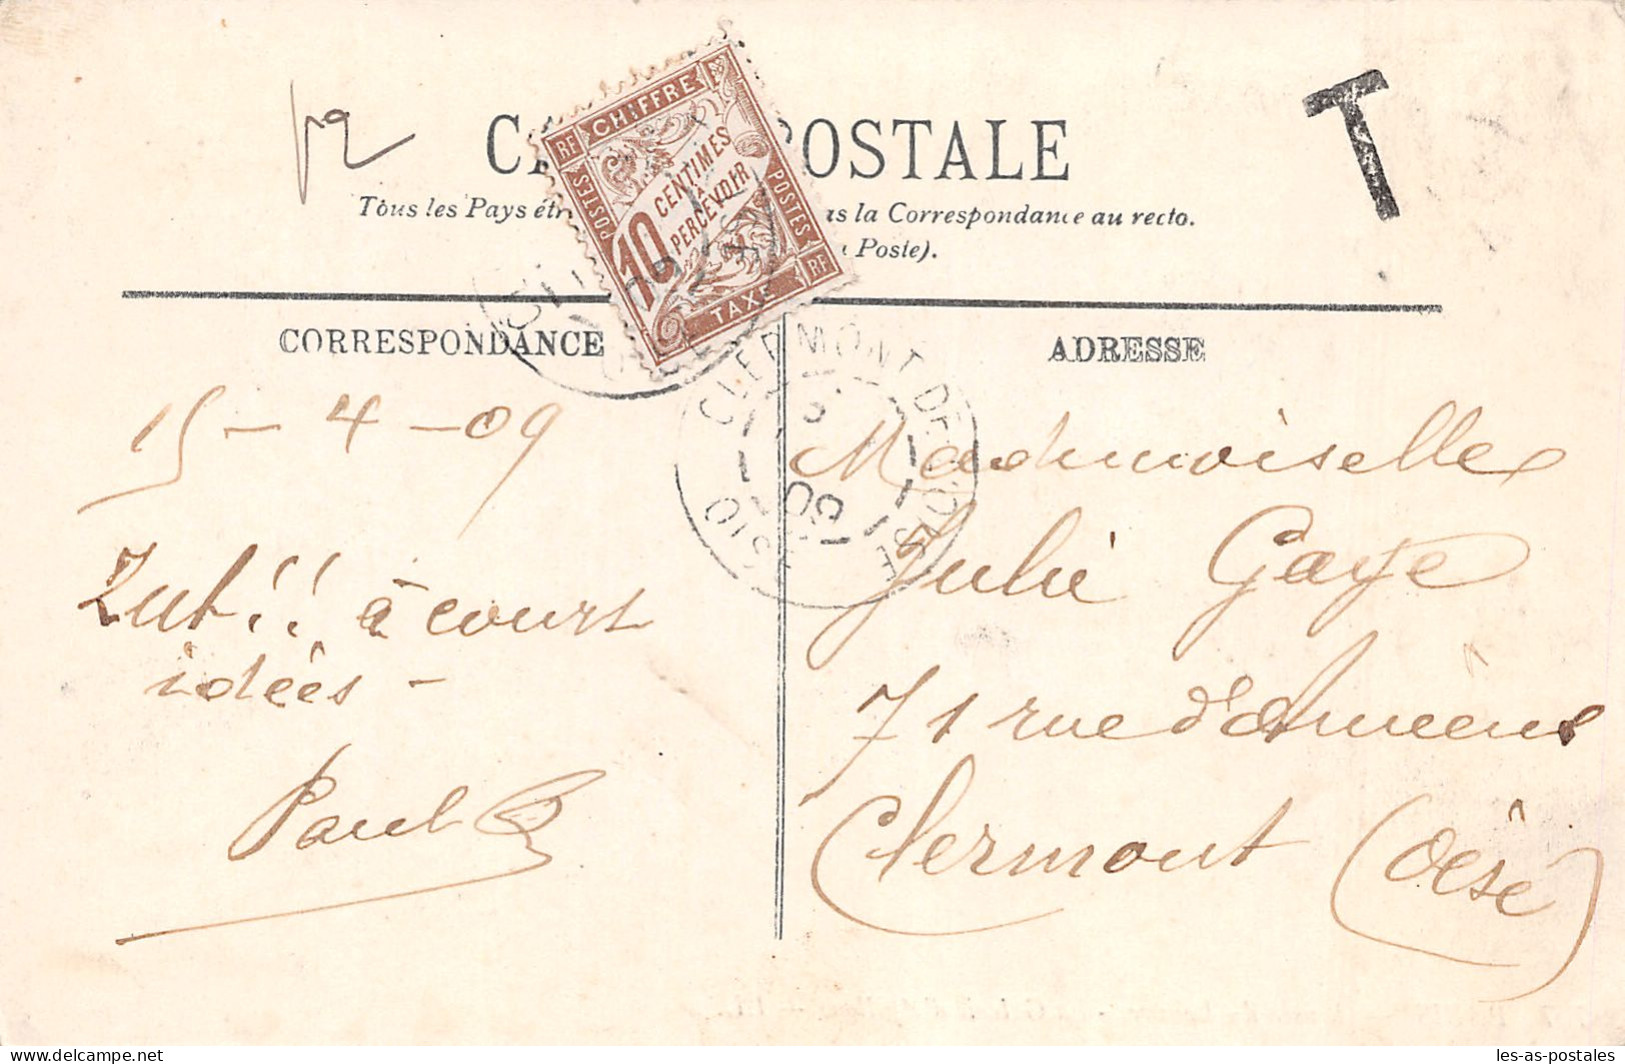 CHIFFRE
RF
POSTES
10 CENTIMES
À
PERCEVOIR
POSTES
TAXE
RF
T
POSTALE
Tous les Pays
la Correspondance au recto.
Poste).
CORRESPONDANCE
ADRESSE
CLERMONT DE L'OISE
09
15 - 4 - 09
Zut!! à court
idées -
Paul
Mademoiselle
Julie Gaye
71 rue d'Amiens
Clermont (Oise)
les-as-postales